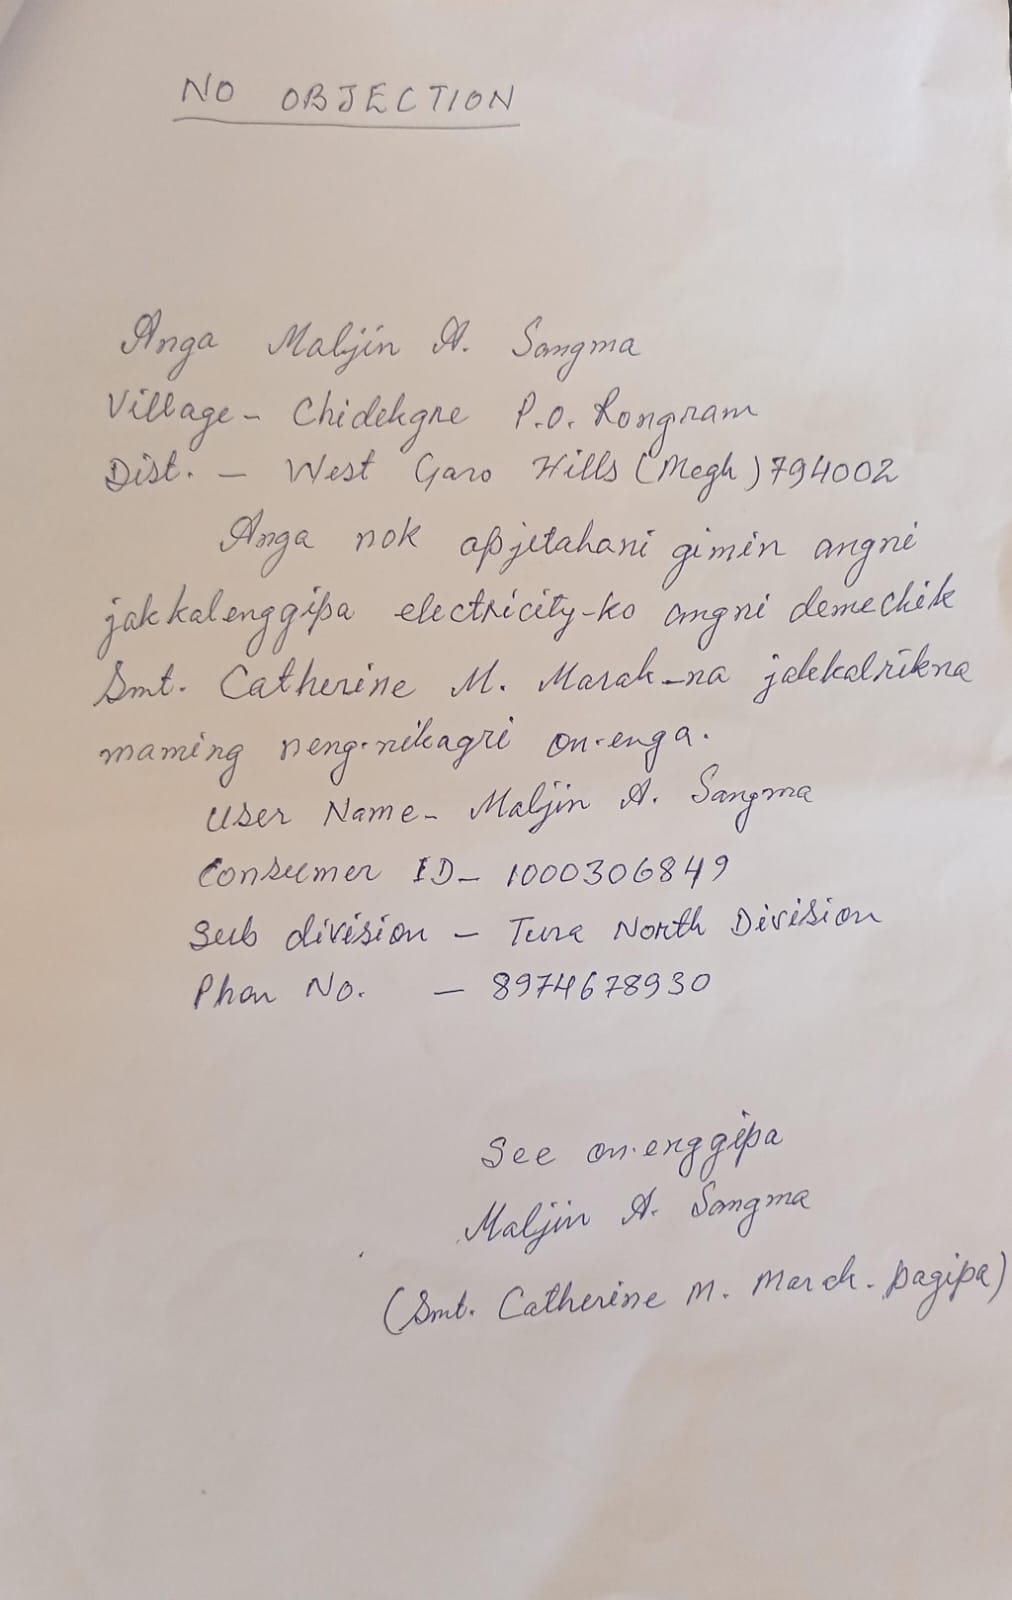 NO OBJECTION
Anga Maljin A. Sangma
Village - Chidekgre P.O. Rongram
Dist. - West Garo Hills (Megh) 794002
Anga nok apjetahani gimin angni
jakkalenggipa electricity-ko angni demechik
Smt. Catherine M. Marak-na jakkalrikna
maming neng·nikagri on·enga.
User Name - Maljin A. Sangma
Consumer ID - 1000306849
Sub division - Tura North Division
Phon No. - 8974678930
See on·enggipa
Maljin A. Sangma
(Smt. Catherine M. Marak. pagipa)